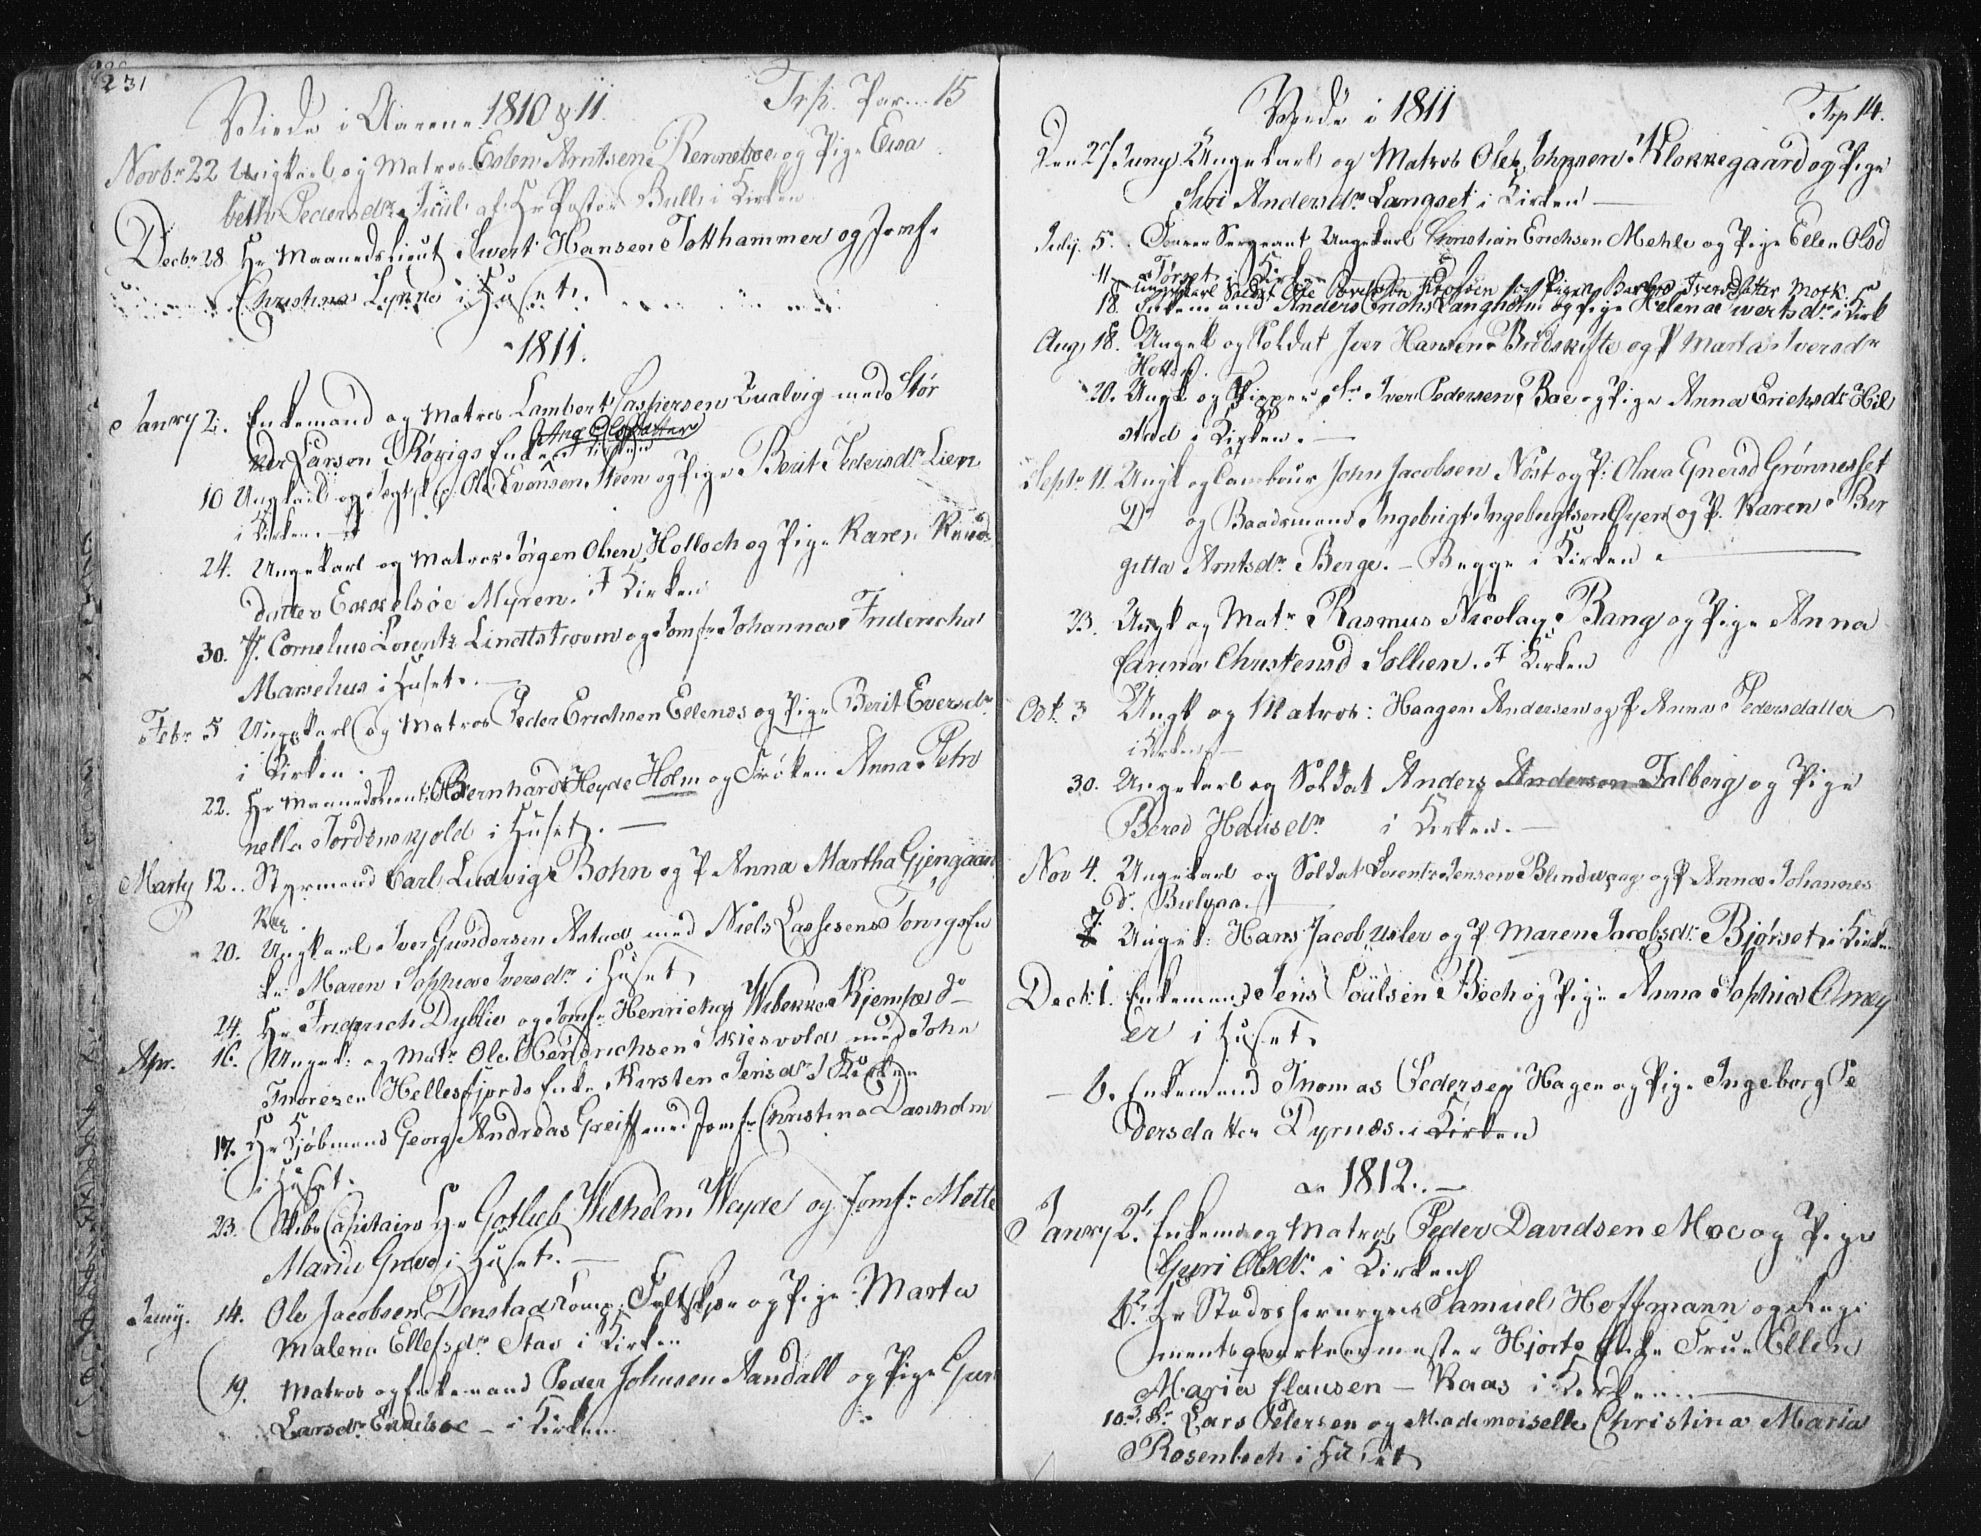 231
Viede i Aarene 1810 & 11. Trp. Par. 15
Novbr 22 Ungkarl og Matros Esten Arntsen Renneboe og Pige Elisa
beth Pedersdr Juul af Hr Pastor Bull i Kirken
Decbr 28 Hr Maanedslieut Sivert Hansen Totthammer og Jomfr
Christina Lynne i Huset.
1811.
Janry 2. Enkemand og Matros Lambert Caspersen Qualvig med Stør
ker Larsen Røvigs Enke Ane Olsdatter i Kirken
10 Ungkarl og Jegtsk. Ole Evensen Steen og Pige Berit Pedersdr Lien
i Kirken
24. Ungekarl og Matros Jørgen Olsen Holloch og Pige Karen Knuds
datter Eckelsøe Myren. I Kirken
30. Hr. Cornelius Lorentz Lindtstroom og Jomfr Johanna Fridericha
Marselius i Huset.
Febr 5 Ungkarl og Matros Peder Erichsen Ellenes og Pige Berit Eversdr
i Kirken.
22. Hr Maanedslieut Bernhard Heyde Holm og Frøken Anna Petro
nella Tordenskjold i Huset.
Marty 12. Styrmand Carl Ludvig Bohn og P Anna Martha Gjengaan
20. Ungkarl Iver Gundersen Astad med Niels Lassesens Tonigs En
ke Maren Sophia Iversdr i Huset
24. Hr Friderich Dyblie og Jomfr Henricha Wibekke Kjempe do
Apr. 16. Ungek: og Matr Ole Hendrichsen Skiesvold med John
Thoresen Hellesfjords Enke Kirsten Jensdr I Kirken
17. Hr Kjøbmand Georg Andreas Greiff med Jomfr Christina Dascholm
i Huset.
23. Skibs Capitaine Hr Gotlieb Wilhelm Weyde og Jomfr Mette
Maria Greve i Huset.
Juny. 14. Ole Jacobsen Denstad Comp. Feltskjær og Pige Marta
Malena Ellefsdr Stav i Kirken
19. Matros og Enkemand Peder Johnsen Aandall og Pige Guri
Larsdr Eckelsøe - i Kirken
Viede i 1811 Trp 14.
Den 27 Juny Ungekarl og Matros Ole Johnsen Klokkegaard og Pige
Siri Andersdr Langset i Kirken
July. 5. Sergeant Ungekarl Christian Erichsen Mehle og Pige Ellen Olsd
Tørset i Kirken
11 Ungkarl Soldat Ole og Pigen Barbro Iversdatter Mork
18. Enkemand Anders Erichs Langholm og Pige Helena Siwertsdr i Kirk
Aug 18. Ungek og Soldat Iver Hansen Brudskifte og P Marta Iversdr
20. Ungk og Skipper Sr. Iver Pedersen Boe og Pige Anna Erichsdr Hil
stad i Kirken.
Septr 11. Ungk og Tambour John Jacobsen Nøst og P: Olava Enersd Grønnesset
Do og Baadsmand Ingebrigt Ingebrigtsen Øyen og P. Karen Bir
gitta Arntsdr Berge. - Begge i Kirken
23. Ungk og Matr Rasmus Nicolay Bang og Pige Anna
Carina Christensd Sollien. I Kirken
Oct. 3 Ungk og Matros: Haagen Andersen og P Anna Pedersdatter
i Kirken
30. Ungekarl og Soldat Anders Andersen Talberg og Pige
Bered Hansdr i Kirken.
Nov 4. Ungekarl og Soldat Lorents Jensen Blindvaag og P Anna Johannes
d. Bulvaa.
7. Ungek: Hans Jacob Usler og P Maren Jacobsdr Bjørset i Kirken
Decbr 1. Enkemand Jens Poulsen Bech og Pige Anna Sophia Omey
er i Huset
6. Enkemand Thomas Pedersen Hagen og Pige Ingeborg Pe
dersdatter Dyrnæs. i Kirken
1812.
Janry 2. Enkem og Matros Peder Davidsen Moe og Pige
Guri Olsdr i Kirken
Hr Stadschirurgus Samuel Hoffmann og Regi
mentsqvarteermester Hjorts Enke Frue Ellen
Maria Clausen - Kaas i Kirken
10. Sr. Lars Petersen og Mademoiselle Christina Maria
Rosenbech i Huset